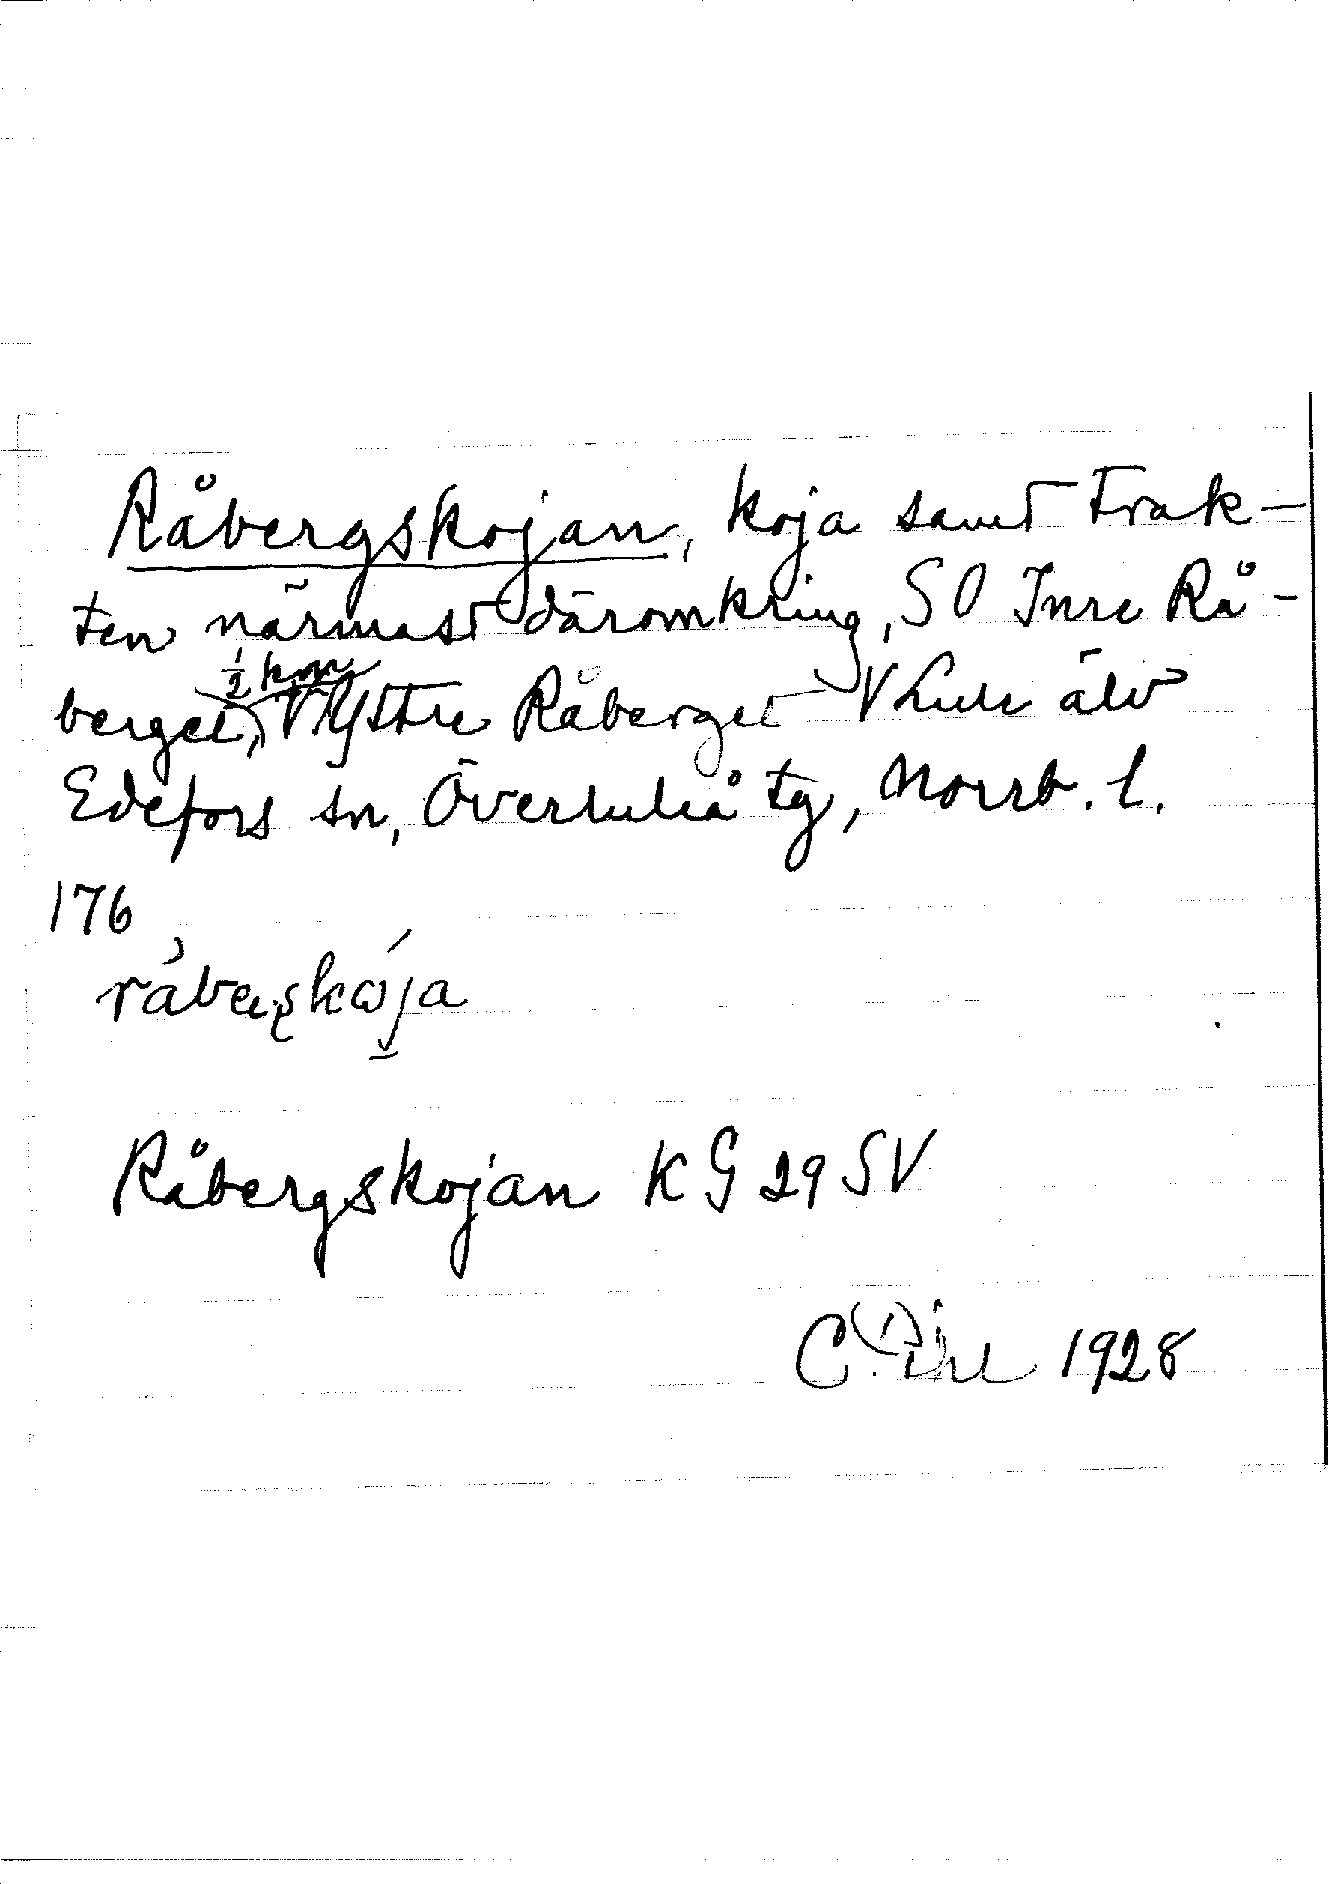 Råbergskojan, koja samt trak-
ten närmast däromkring, SO Inre Rå-
berget, ½ km V Yttre Råberget V Lule älv
Edefors sn, Överluleå tg, Norrb. l.
176
Råbergskojan KG 29 SV
C. Dihl 1928